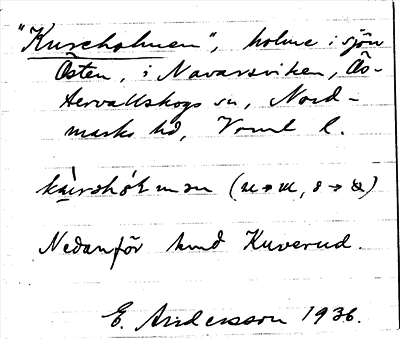 "Kureholmen", holme i sjön
Östen, i Navarsviken, Ös-
tervallskogs sn, Nord-
marks hd, Vrml l.
Nedanför hmd Kuverud.
E. Andersson 1936.